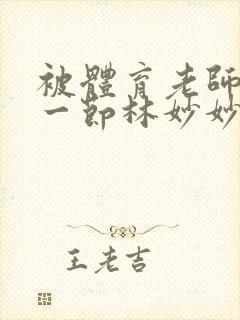 被體育老師
一節林妙妙
王老吉